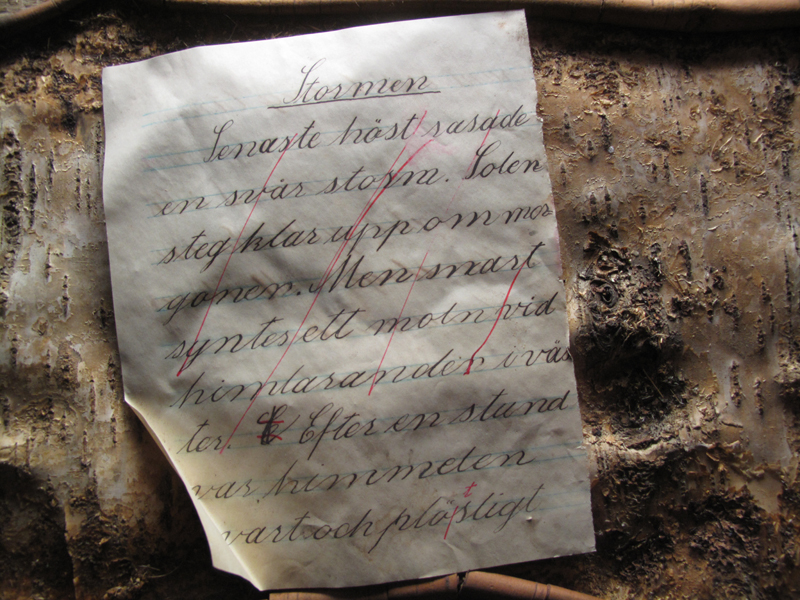 Stormen
Senaste höst rasade
en svår storm. Solen
steg klar upp om mor
gonen. Men snart
syntes ett moln vid
himlaranden i väs
ter. Efter en stund
var himmelen
svart och plösligt